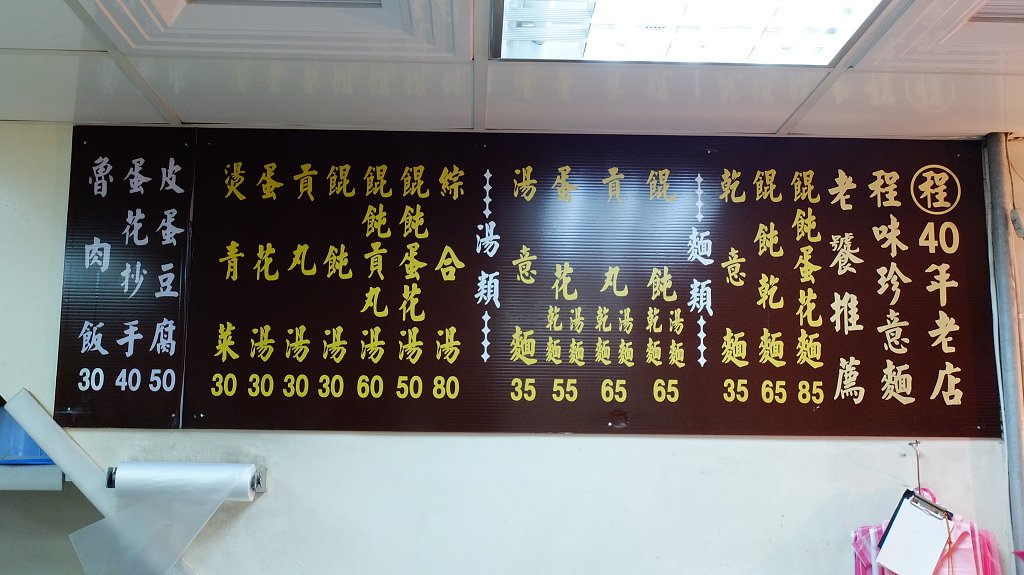 程40年老店
程味珍意麵
老饕推薦
餛飩蛋花麵85
餛飩乾麵65
乾意麵35
麵類
餛飩乾麵湯麵65
貢丸乾麵湯麵65
蛋花乾麵湯麵55
湯意麵35
湯類
綜合湯80
餛飩蛋花湯50
餛飩貢丸湯60
餛飩湯30
貢丸湯30
蛋花湯30
燙青菜30
皮蛋豆腐50
蛋花抄手40
魯肉飯30